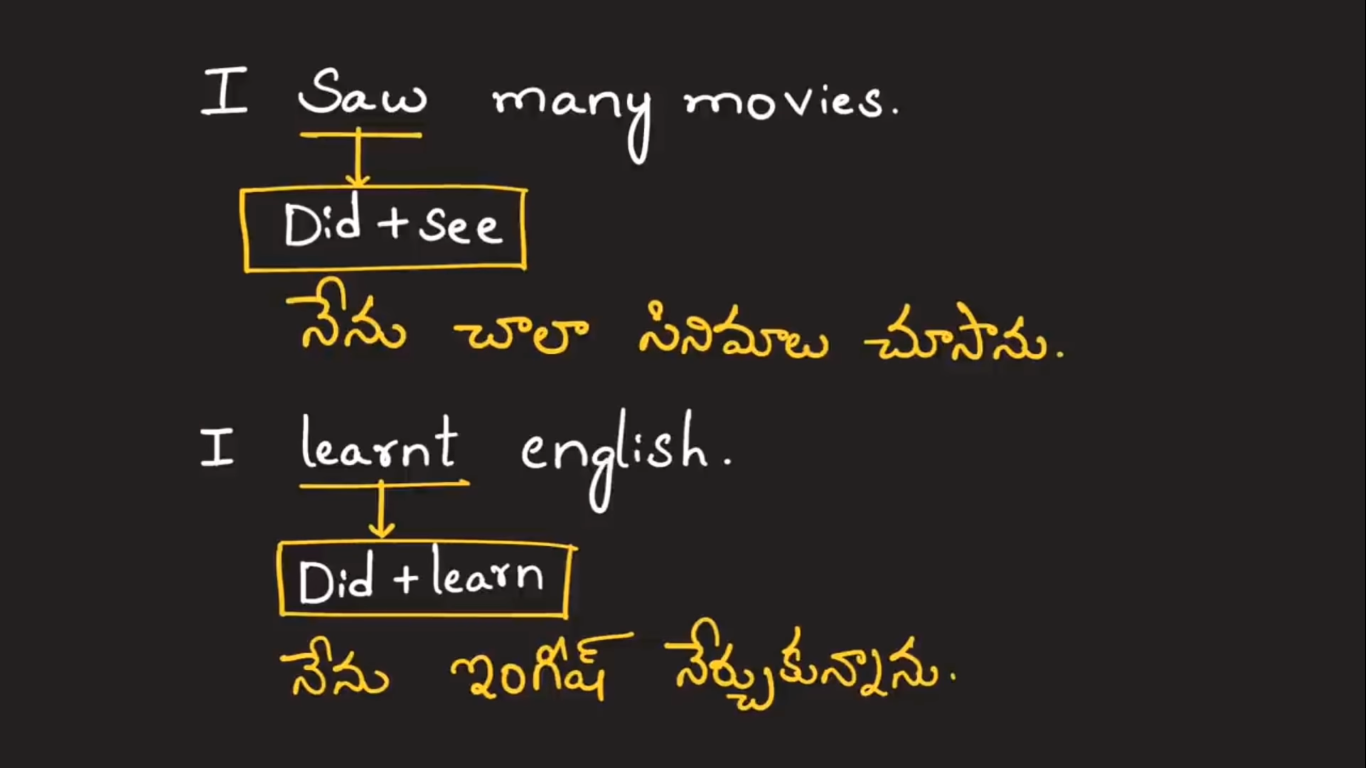 I Saw many movies.
Did + see
నేను చాలా సినిమాలు చూసాను.
I learnt english.
Did + learn
నేను ఇంగ్లీష్ నేర్చుకున్నాను.